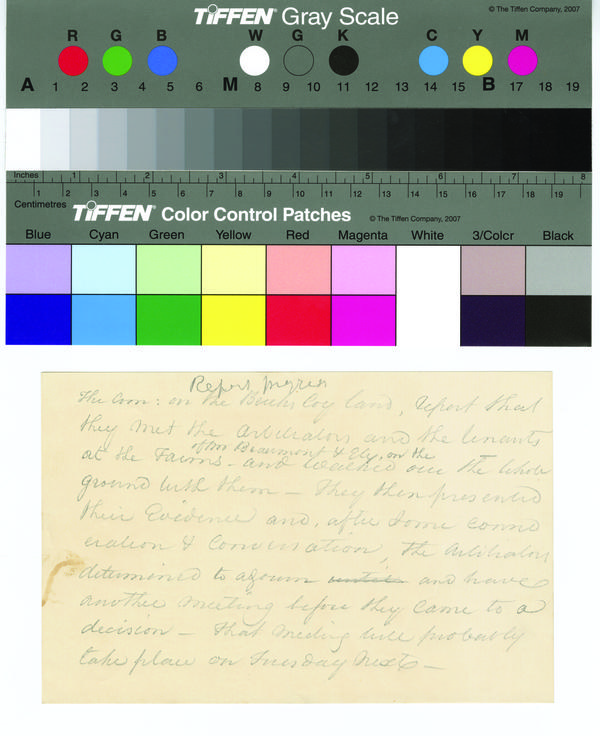 TIFFEN® Gray Scale
© The Tiffen Company, 2007
R G B W G K C Y M
A 1 2 3 4 5 6 M 8 9 10 11 12 13 14 15 B 17 18 19
Inches 1 2 3 4 5 6 7 8
Centimetres 1 2 3 4 5 6 7 8 9 10 11 12 13 14 15 16 17 18 19
TIFFEN® Color Control Patches
© The Tiffen Company, 2007
Blue Cyan Green Yellow Red Magenta White 3/Color Black
Report
The Com: on the Bucks Coy land, report that
they met the Arbitrators and the tenants
of Beaumont & Ely, on the
at the Farms - and walked over the whole
ground with them - They then presented
their Evidence and, after some consid
eration & Conversation, the Arbitrators
determined to ajourn until and have
another meeting before they came to a
decision - that meeting will probably
take place on Tuesday next -